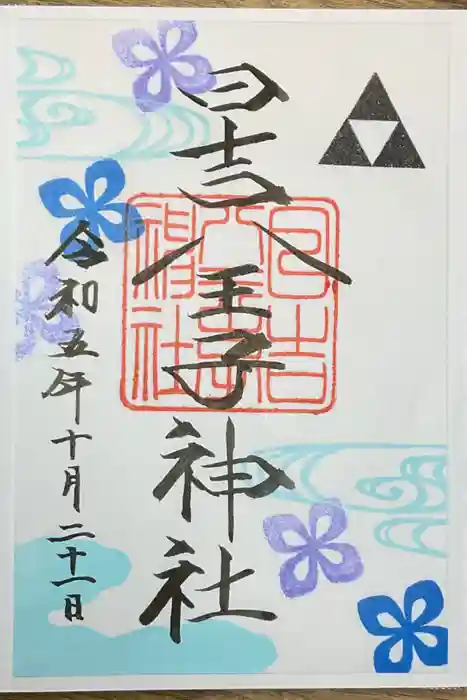 日吉八王子神社
日吉八王子神社
令和五年十月二十一日